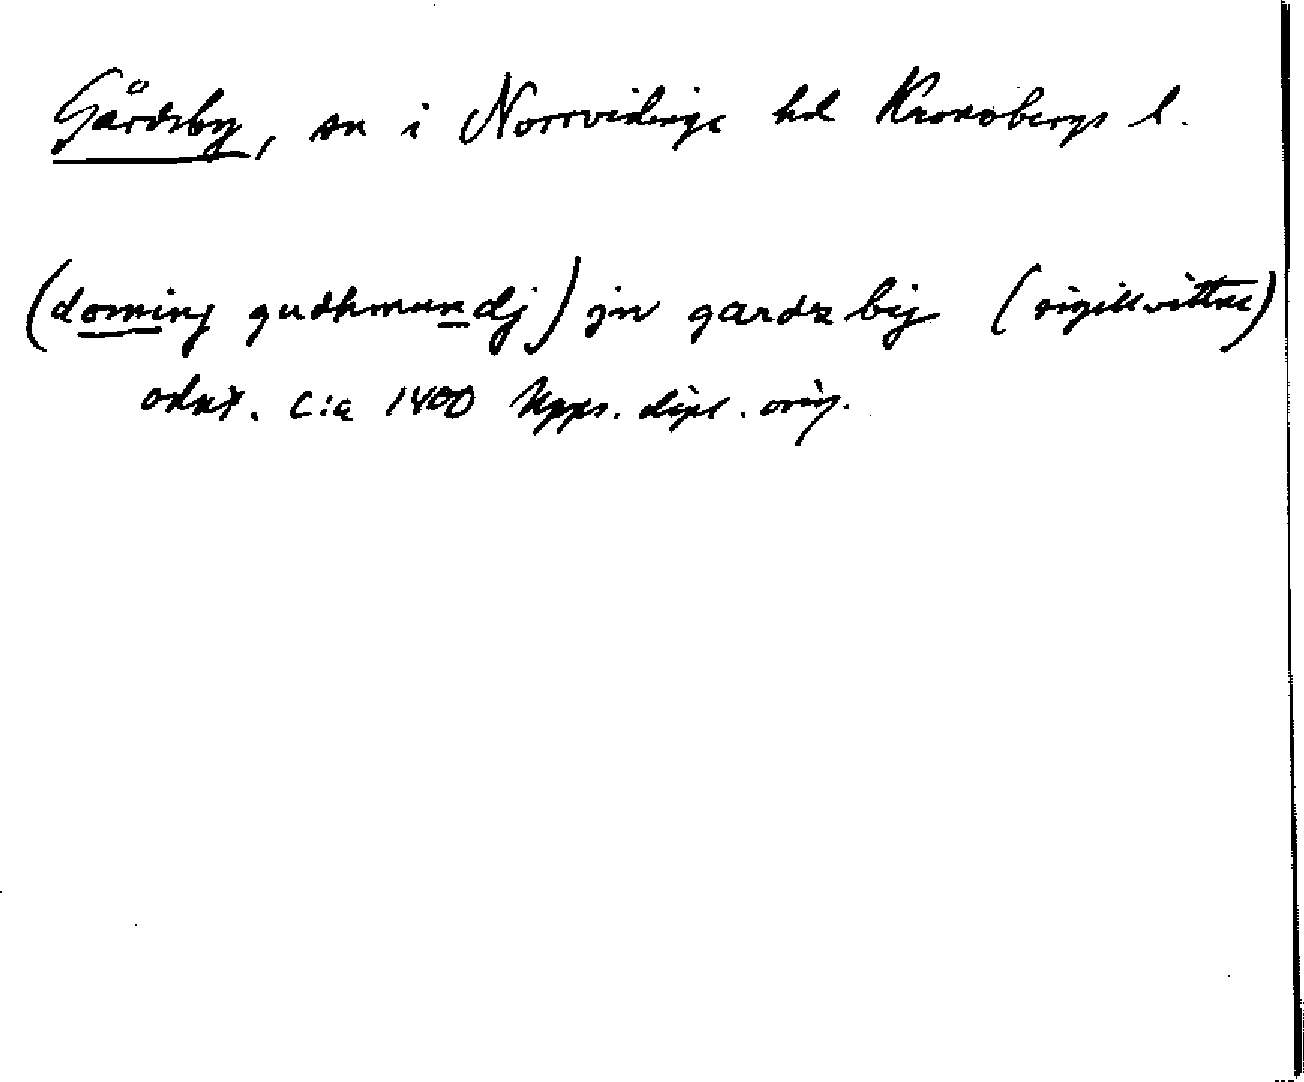 Gårdsby, sn i Norrvidinge hd Kronobergs l.
(dominj gudhmundj) jn gardzbij (sigillvittne)
odat. c:a 1400 Upps. dipl. orig.